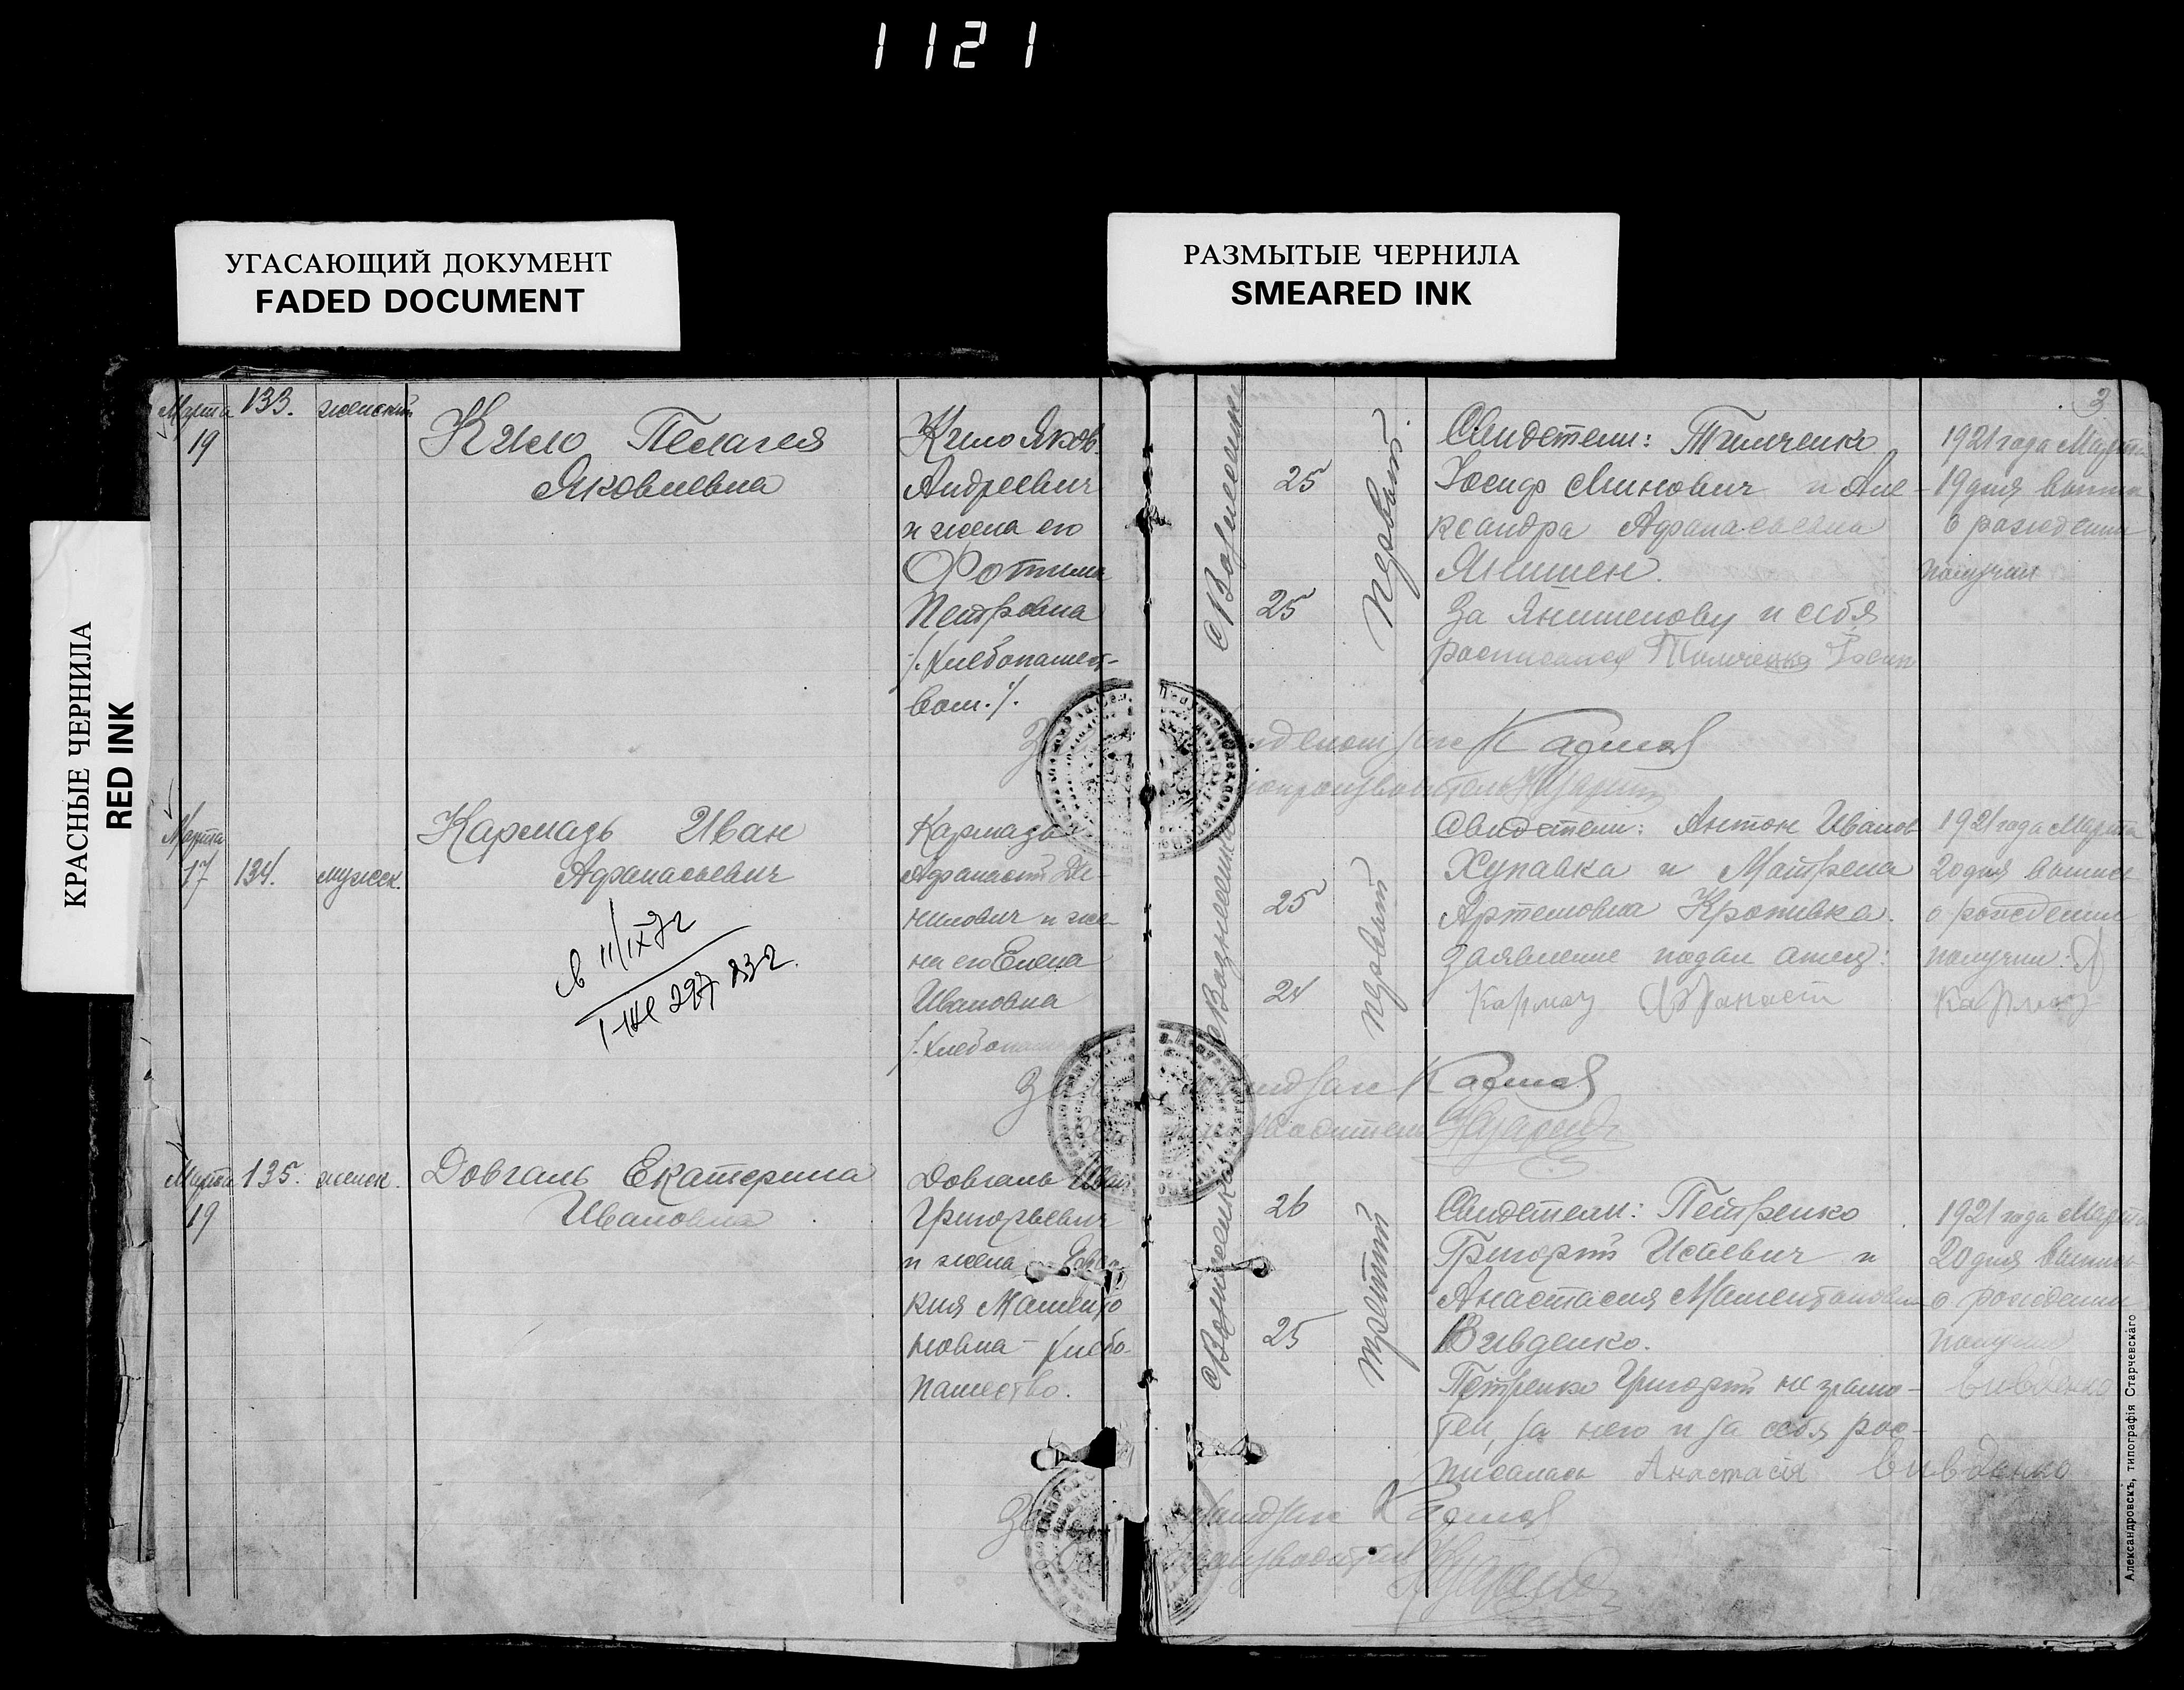 1121
УГАСАЮЩИЙ ДОКУМЕНТ
FADED DOCUMENT
РАЗМЫТЫЕ ЧЕРНИЛА
SMEARED INK
КРАСНЫЕ ЧЕРНИЛА
RED INK
3
Марта 19
133.
женский
Кило Пелагея
Яковлевна
Кило Яков
Андреевич
и жена его
Фотина
Петровна
/.Хлебопашест-
вом./.
с Вознесенка
25
25
первый
Свидетели: Тимченко
Иосиф Минович и Але-
ксандра Афанасьевна
Янишен.
За Янишенову и себя
росписался Тимченко
1921 года Марта
19 дня выпис
о рождении
получил
Марта 17
134.
мужск.
Кармазь Иван
Афанасьевич
св 11/IX 72
297 232.
Кармазь
Афанасий Да-
нилович и же-
на его Елена
Ивановна
/.Хлебопаш
с Вознесенка
25
24
первый
Свидетели: Антон Иванов
Хупавка и Матрена
Артемовна Кропивка.
Заявление подал отец:
Кармаз Афанасий
1921 года Марта
20 дня выпис
о рождении
получил:
Кармаз
Марта 19
135.
женск.
Довгаль Екатерина
Ивановна
Довгаль Иван
Григорьевич
и жена
кия Мамент
новна - хлебо-
пашество.
с Вознесенка
26
25
третий
Свидетели: Петренко
Григорий Исаевич и
Анастасия
Вивденко.
Петренко Григорий не грамо-
тен, за него и за себя рос-
писалась Анастасія Вивденко
1921 года Марта
20 дня выпись
о рождении
получил
Вивденко
Александровскъ, типографія Старчевскаго